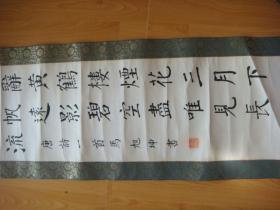 辭黃鶴樓煙花三月下
帆遠影碧空盡唯見長
流 唐詩一首 馬旭坤書